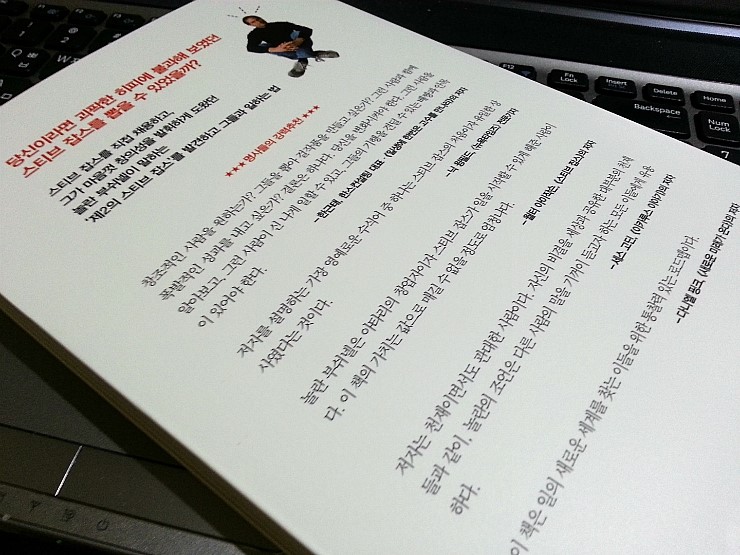 당신이라면 괴팍한 히피에 불과해 보였던
스티브 잡스를 뽑을 수 있었을까?
스티브 잡스를 직접 채용하고,
그가 마음껏 창의성을 발휘하게 도왔던
놀란 부쉬넬이 말하는
'제2의 스티브 잡스'를 발견하고, 그들과 일하는 법
★★★ 명사들의 강력추천 ★★★
창조적인 사람을 원하는가? 그들을 뽑아 걸작품을 만들고 싶은가? 그런 사람과 함께
폭발적인 성과를 내고 싶은가? 결론은 하나다. 당신은 변해야 한다. 그런 사람을
알아보고, 그런 사람이 신 나게 일할 수 있고, 그들의 기행을 견딜 수 있는 배짱과 안목
이 있어야 한다.
-한근태, 한스컨설팅 대표,
저자를 설명하는 가장 영예로운 수식어 중 하나는 스티브 잡스의 처음이자 마지막 상
사였다는 것이다.
-닉 윙필드 〈뉴욕타임즈〉 전문기자
놀란 부쉬넬은 아타리의 창업자이자 스티브 잡스가 일을 시작할 수 있게 해준 사람이
다. 이 책의 가치는 값으로 매길 수 없을 정도로 엄청나다.
-월터 아이작슨, 《스티브 잡스》의 저자
저자는 천재이면서도 관대한 사람이다. 자신의 비결을 세상과 공유한 대부분의 천재
들과 같이, 놀란의 조언은 다른 사람의 말을 기꺼이 듣고자 하는 모든 이들에게 유용
하다.
-세스 고딘, 《이카루스 이야기》의 저자
이 책은 일의 새로운 세계를 찾는 이들을 위한 통찰력 있는 로드맵이다.
-다니엘 핑크, 《새로운 미래가 온다》의 저자
F12
Fn
Lock
Insert
Delete
Home
Backspace
Num
Lock